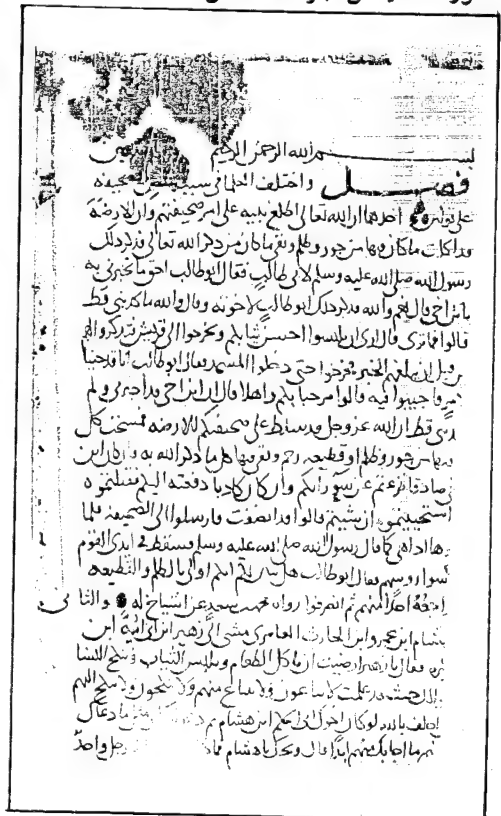 بسم الله الرحمن الرحيم
فصل واختلف العلما في سبب نقض الصحيفة
على قولين احدهما ان الله تعالى اطلع نبيه على امر صحيفتهم وان الارضة
قد اكلت ما كان فيها من جور وظلم وبقي ما كان من ذكر الله تعالى فذكر ذلك
رسول الله صلى الله عليه وسلم لابي طالب فقال ابو طالب احق ما تخبرني به
يا ابن اخي قال نعم والله فذكر ذلك ابو طالب لاخوته وقال والله ما كذبني قط
قالوا فما ترى قال ارى ان تلبسوا احسن ثيابكم وتخرجوا الى قريش فتذكروا لهم
من قبل ان يبلغهم الخبر فخرجوا حتى دخلوا المسجد فقال ابو طالب انا قد جينا
امر فاجيبوا فيه قالوا مرحبا بكم واهلا قال ان ابن اخي قد اخبرني ولم
قط ان الله عز وجل قد سلط على صحيفتكم الارضة فمسحت كل
فيها من جور وظلم او قطيعة رحم وبقي فيها كل ما ذكر الله به فان كان ابن
صادقا نزعتم عن سوء رايكم وان كان كاذبا دفعته اليكم فقتلتموه
استحييتموه ان شيتم قالوا قد انصفت فارسلوا الى الصحيفة فلما
هي كما قال رسول الله صلى الله عليه وسلم فسقط في ايدي القوم
روسهم فقال ابو طالب هل انكم اولى بالظلم والقطيعة
احد منهم ثم انصرفوا رواه محمد بن سعد عن اشياخ له والثاني
هشام ابن عمرو ابن الحارث العامري مشى الى زهير ابن ابي امية ابن
فقال يا زهير ارضيت ان تاكل الطعام وتلبس الثياب وتنكح النسا
حيث قد علمت لا يباعون ولا يبتاع منهم ولا ينكحون ولا ينكح اليهم
احلف بالله لو كان اخوال ابي الحكم ابن هشام ثم
ما اجابك منهم ابدا قال ويحك يا هشام رجل واحد